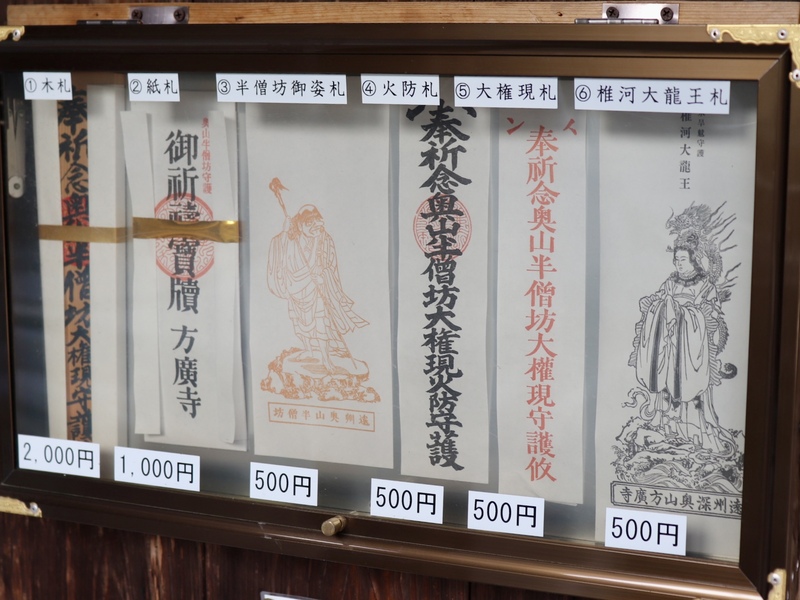 ①木札
②紙札
③半僧坊御姿札
④火防札
⑤大権現札
⑥椎河大龍王札
奉祈念奥山半僧坊大権現守護
奥山半僧坊守護
御祈禱寶牘 方廣寺
坊僧半山奥州遠
奉祈念奥山半僧坊大権現火防守護
奉祈念奥山半僧坊大權現守護攸
椎河大龍王
寺廣方山奥深州遠
2,000円
1,000円
500円
500円
500円
500円